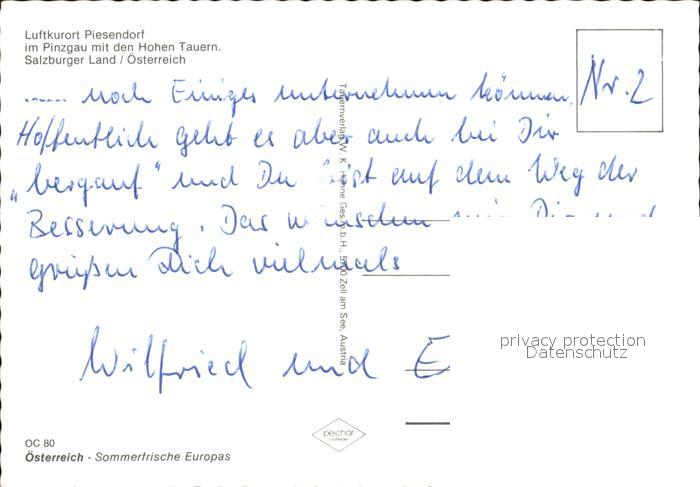 Luftkurort Piesendorf
im Pinzgau mit den Hohen Tauern.
Salzburger Land / Österreich
Nr. 2
...... noch Einiges unternehmen können.
Hoffentlich geht es aber auch bei Dir
„bergauf" und Du bist auf dem Weg der
Besserung. Das wünschen wir Dir und
grüßen Dich vielmals
Wilfried und E
Tauernverlag W. K. Ges.m.b.H., 5700 Zell am See, Austria
privacy protection
Datenschutz
peichar
OC 80
Österreich - Sommerfrische Europas